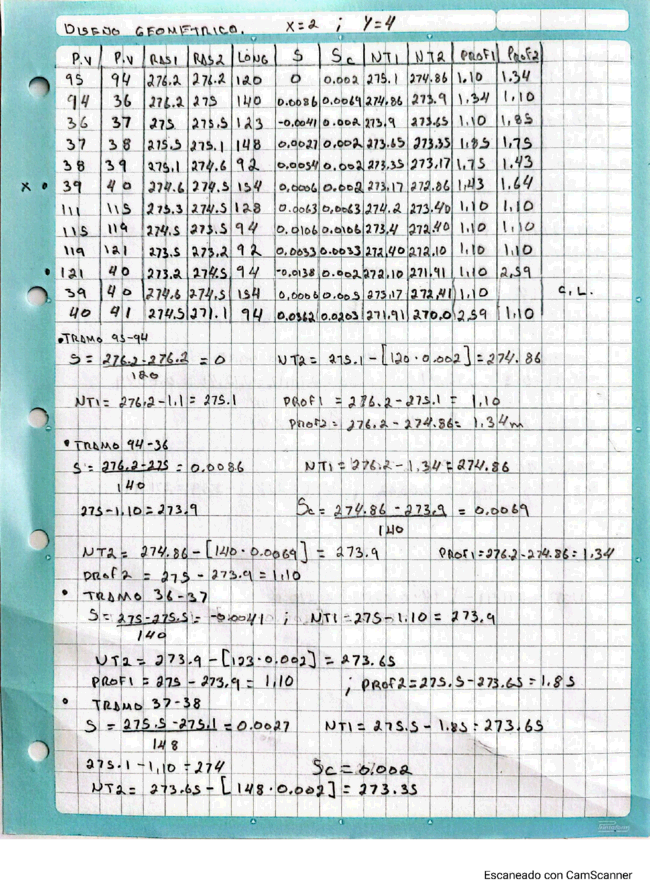 DISEÑO GEOMETRICO. X=2 ; Y=4
P.V P.V RAS1 RAS2 LONG S Sc NT1 NT2 PROF1 PROF2
95 94 276.2 276.2 120 0 0.002 275.1 274.86 1.10 1.34
94 36 276.2 275 140 0.0086 0.0069 274.86 273.9 1.34 1.10
36 37 275 275.5 123 -0.0041 0.002 273.9 273.65 1.10 1.85
37 38 275.5 275.1 148 0.0027 0.002 273.65 273.35 1.85 1.75
38 39 275.1 274.6 92 0.0054 0.002 273.35 273.17 1.75 1.43
x • 39 40 274.6 274.5 154 0.0006 0.002 273.17 272.86 1.43 1.64
111 115 275.3 274.5 128 0.0063 0.0063 274.2 273.40 1.10 1.10
115 119 274.5 273.5 94 0.0106 0.0106 273.4 272.40 1.10 1.10
119 121 273.5 273.2 92 0.0033 0.0033 272.40 272.10 1.10 1.10
• 121 40 273.2 274.5 94 -0.0138 0.002 272.10 271.91 1.10 2.59
39 40 274.6 274.5 154 0.0006 0.005 273.17 272.41 1.10 C.L.
40 41 274.5 271.1 94 0.0362 0.0203 271.91 270.0 2.59 1.10
• TRAMO 95-94
S = 276.2-276.2 = 0 NT2= 275.1-[120·0.002]=274.86
120
NT1= 276.2-1.1= 275.1 PROF1 = 276.2-275.1 = 1.10
PROF2= 276.2-274.86= 1.34m
• TRAMO 94-36
S = 276.2-275 = 0.0086 NT1= 276.2-1.34=274.86
140
275-1.10=273.9 Sc= 274.86-273.9 = 0.0069
140
NT2= 274.86-[140·0.0069] = 273.9 PROF1=276.2-274.86=1.34
PROF2 = 275-273.9=1.10
• TRAMO 36-37
S= 275-275.5= -0.0041 ; NT1=275-1.10= 273.9
140
NT2= 273.9-[123·0.002]=273.65
PROF1 = 275-273.9=1.10 ; PROF2=275.5-273.65=1.85
• TRAMO 37-38
S = 275.5-275.1=0.0027 NT1=275.5-1.85=273.65
148
275.1-1.10=274 Sc=0.002
NT2= 273.65-[148·0.002]=273.35
Escaneado con CamScanner